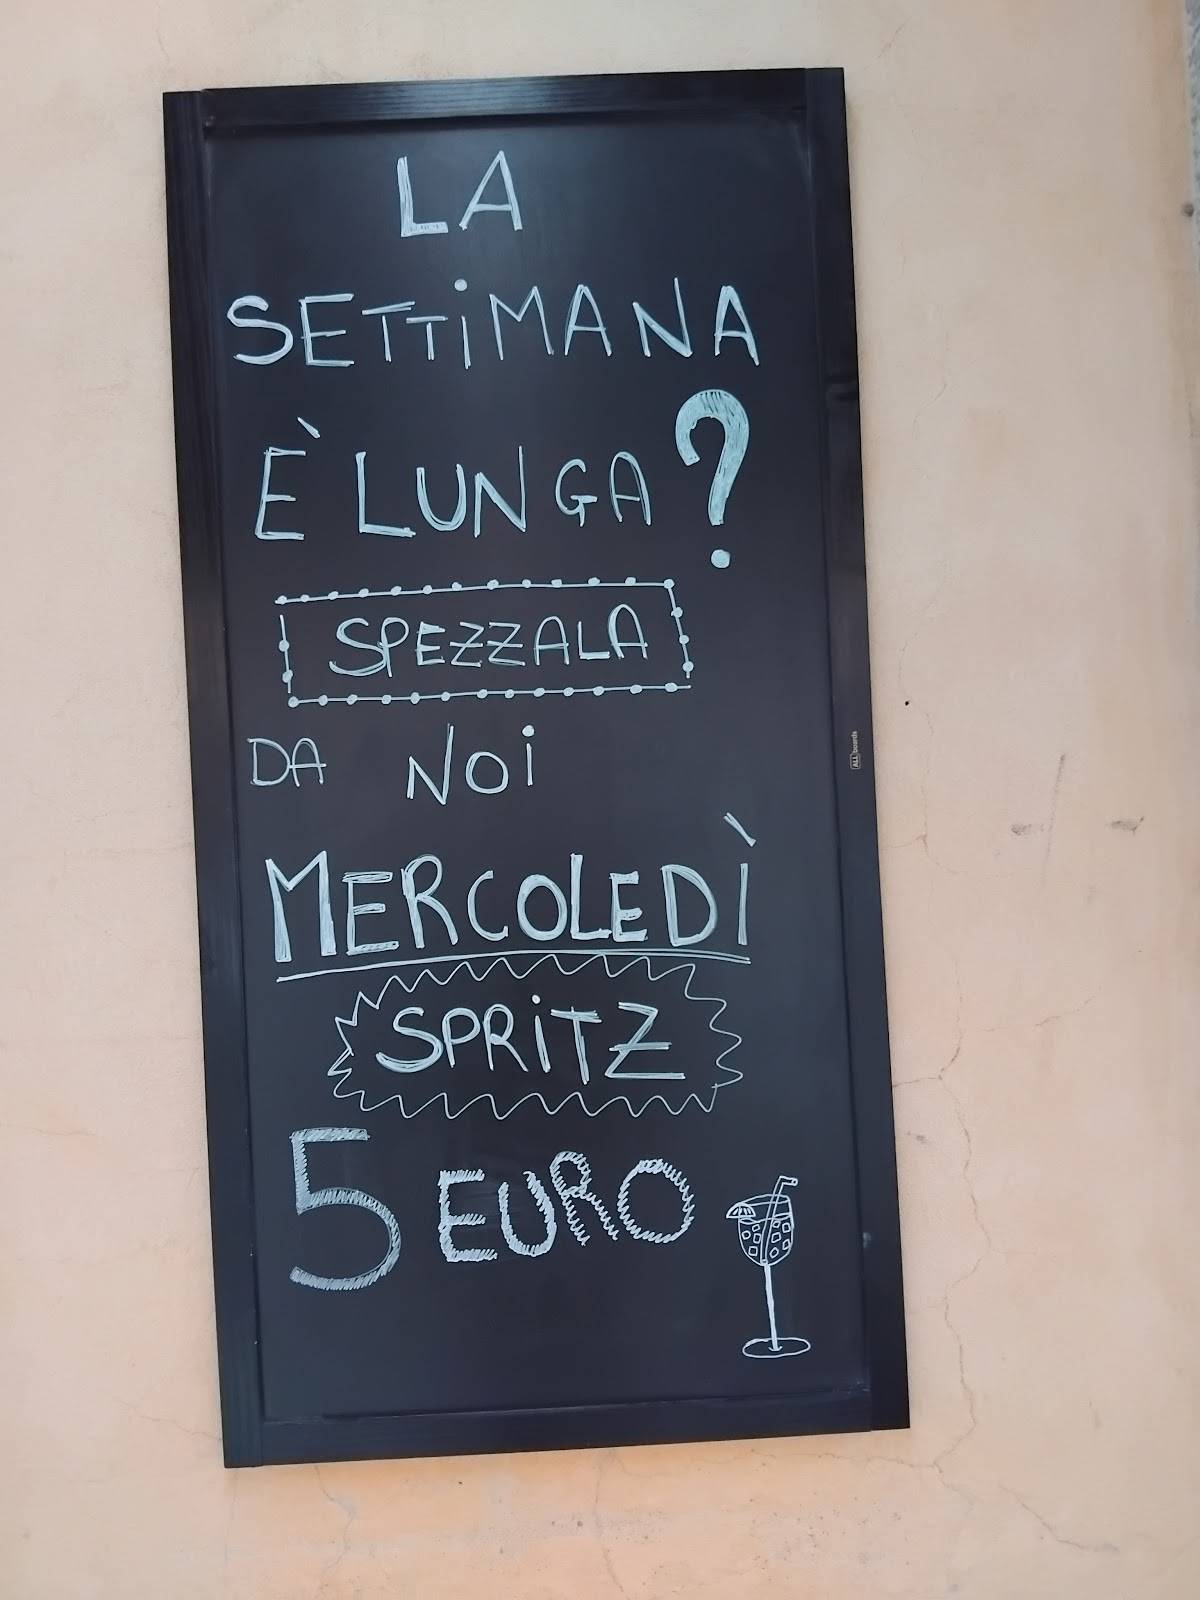 LA
SETTiMANA
È LUNGA?
SPEZZALA
DA NOi
MERCOLEDÌ
SPRiTZ
5 EURO
ALLboards